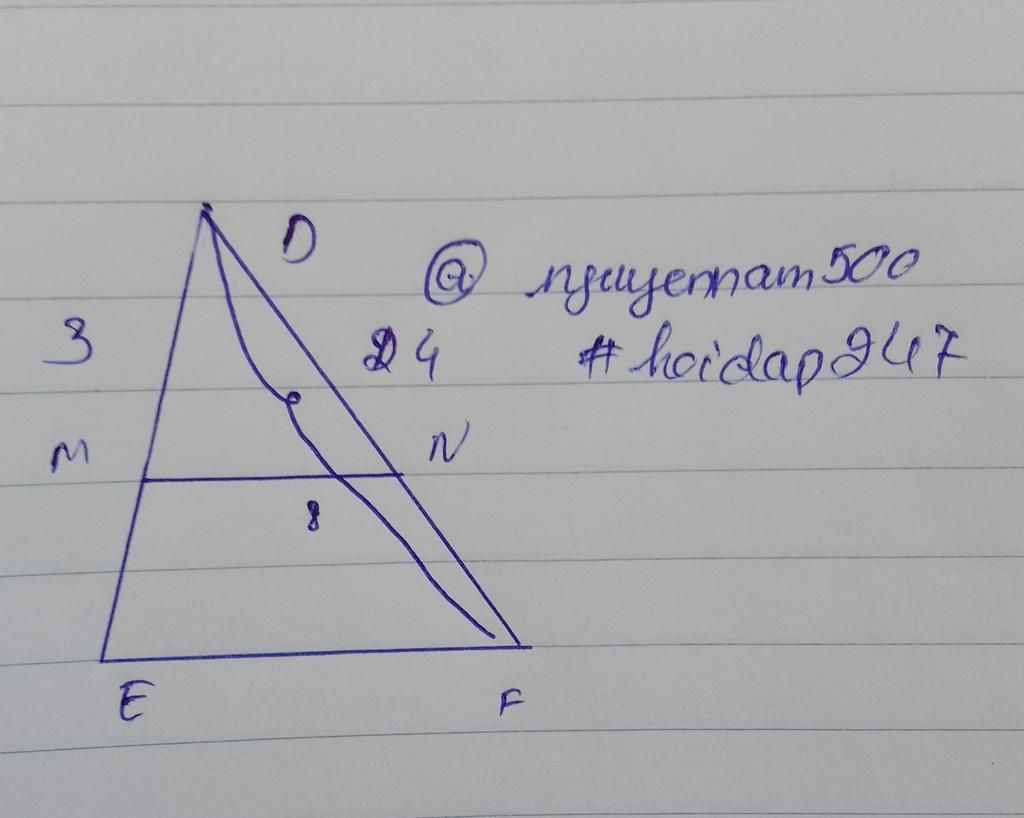 D
@ nguyennam500
3
24
#hoidap247
M
N
8
E
F